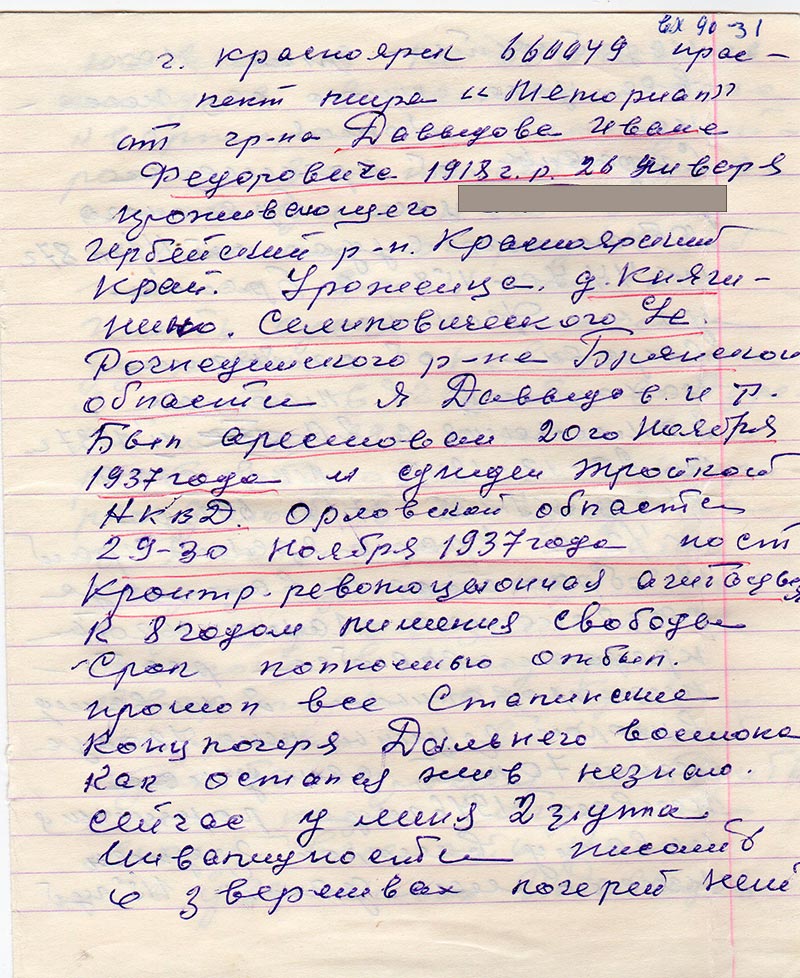 вх 90-31
г. Красноярск 660049 прос-
пект мира "Мемориал"
от гр-на Давыдова Ивана
Федоровича 1918 г.р. 26 января
проживающего
Ирбейский р-н. Красноярский
край. Уроженца. д. Княги-
нино. Селиловического
Рогнединского р-на Брянской
области я Давыдов. И Ф.
Был арестован 20го Ноября
1937 года и сужден тройкой
НКВД. Орловской области
29-30 Ноября 1937 года по ст
Контр. революционная агитация
К 8 годам лишения свободы
Срок полностью отбыл.
прошол все Сталинские
Концлагеря Дальнего востока
как остался жив незнаю.
сейчас у меня 2 группа
Инвалидности писать
о зверствах лагерей